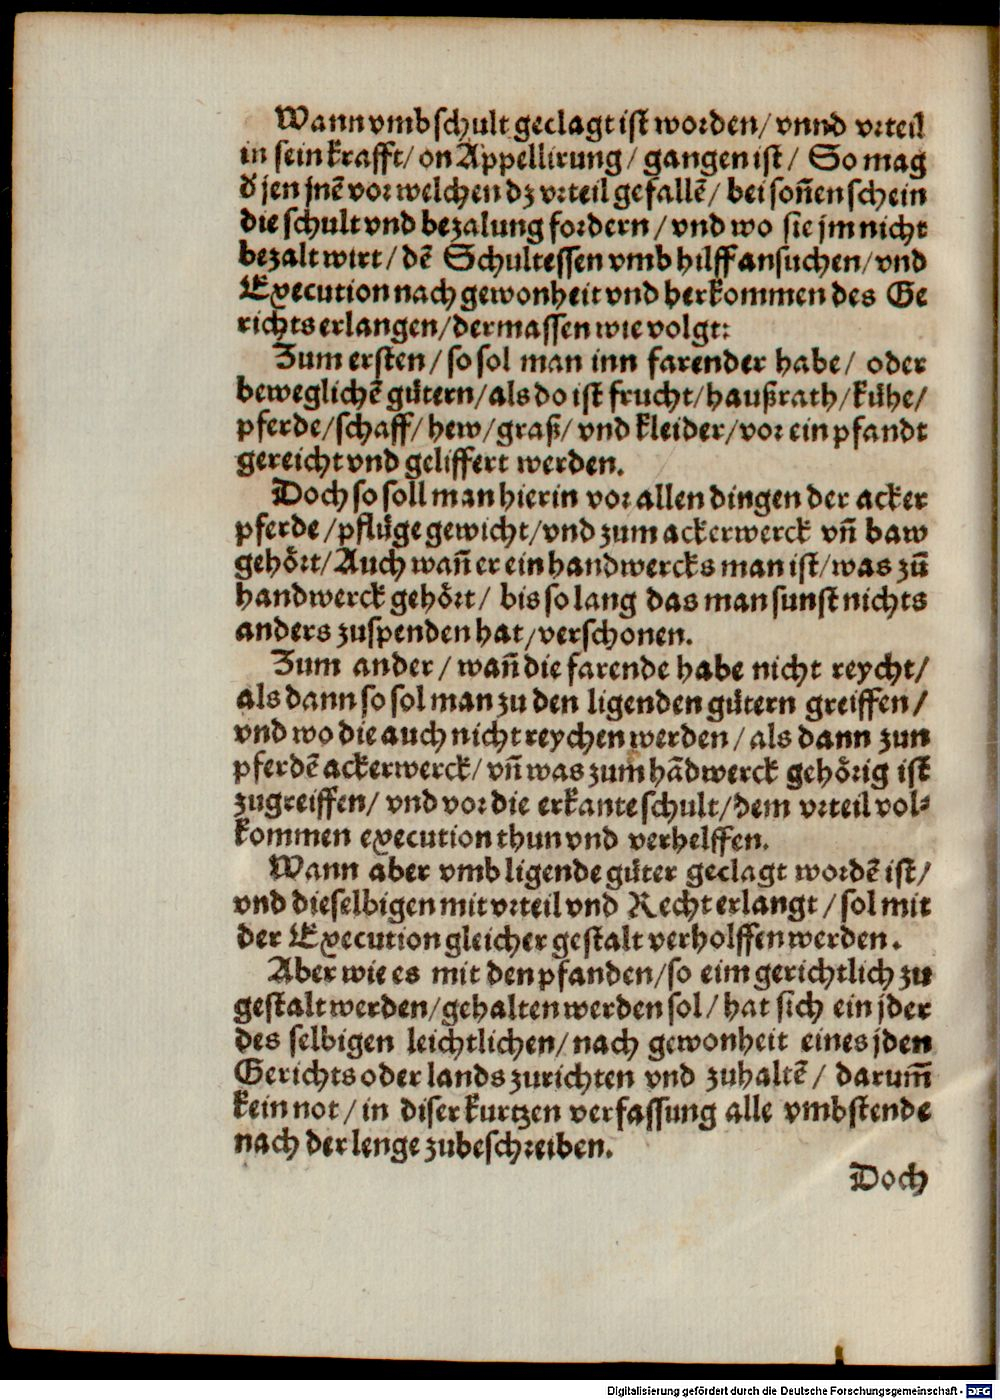 Wann vmb schult geclagt ist worden/ vnnd vrteil
in sein krafft/ on Appellirung/ gangen ist/ So mag
d̕ jen jnē vor welchen dz vrteil gefallē/ bei soñen schein
die schult vnd bezalung fordern/ vnd wo sie jm nicht
bezalt wirt/ dē Schultessen vmb hilff ansuchen/ vnd
Execution nach gewonheit vnd herkommen des Ge
richts erlangen/ dermassen wie volgt:
Zum ersten/ so sol man inn farender habe/ oder
beweglichē gütern/ als do ist frucht/ haußrath/ kühe/
pferde/ schaff/ hew/ graß/ vnd kleider/ vor ein pfandt
gereicht vnd geliffert werden.
Doch so soll man hierin vor allen dingen der acker
pferde/ pflüge gewicht/ vnd zum ackerwerck vñ baw
gehört/ Auch wañ er ein handwercks man ist/ was zū
handwerck gehört/ bis so lang das man sunst nichts
anders zuspenden hat/ verschonen.
Zum ander/ wañ die farende habe nicht reycht/
als dann so sol man zu den ligenden gütern greiffen/
vnd wo die auch nicht reychen werden/ als dann zun
pferdē ackerwerck/ vñ was zum hādwerck gehörig ist
zugreiffen/ vnd vor die erkante schult/ dem vrteil vol-
kommen execution thun vnd verhelffen.
Wann aber vmb ligende güter geclagt wordē ist/
vnd dieselbigen mit vrteil vnd Recht erlangt/ sol mit
der Execution gleicher gestalt verholffen werden.
Aber wie es mit den pfanden/ so eim gerichtlich zu
gestalt werden/ gehalten werden sol/ hat sich ein jder
des selbigen leichtlichen/ nach gewonheit eines jden
Gerichts oder lands zurichten vnd zuhaltē/ darum̄
kein not/ in diser kurtzen verfassung alle vmbstende
nach der lenge zubeschreiben.
Doch
Digitalisierung gefördert durch die Deutsche Forschungsgemeinschaft - DFG